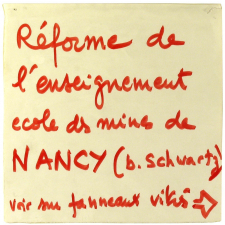 Réforme de
l'enseignement
ecole ds mines de
NANCY (b. Schwartz)
voir sur panneaux vitrés